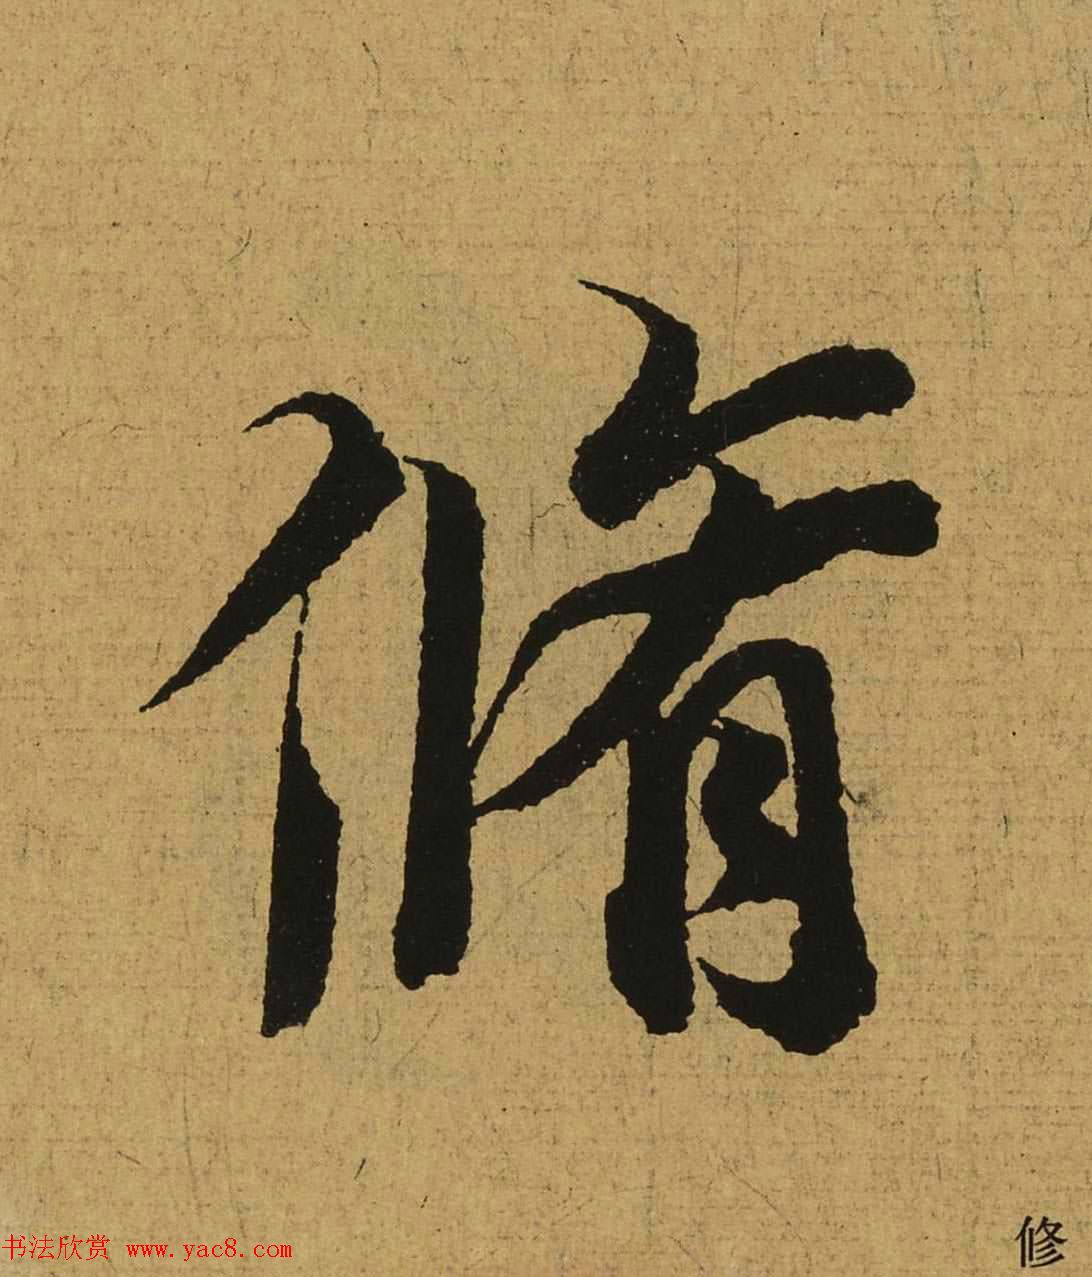 脩
修
书法欣赏 www.yac8.com